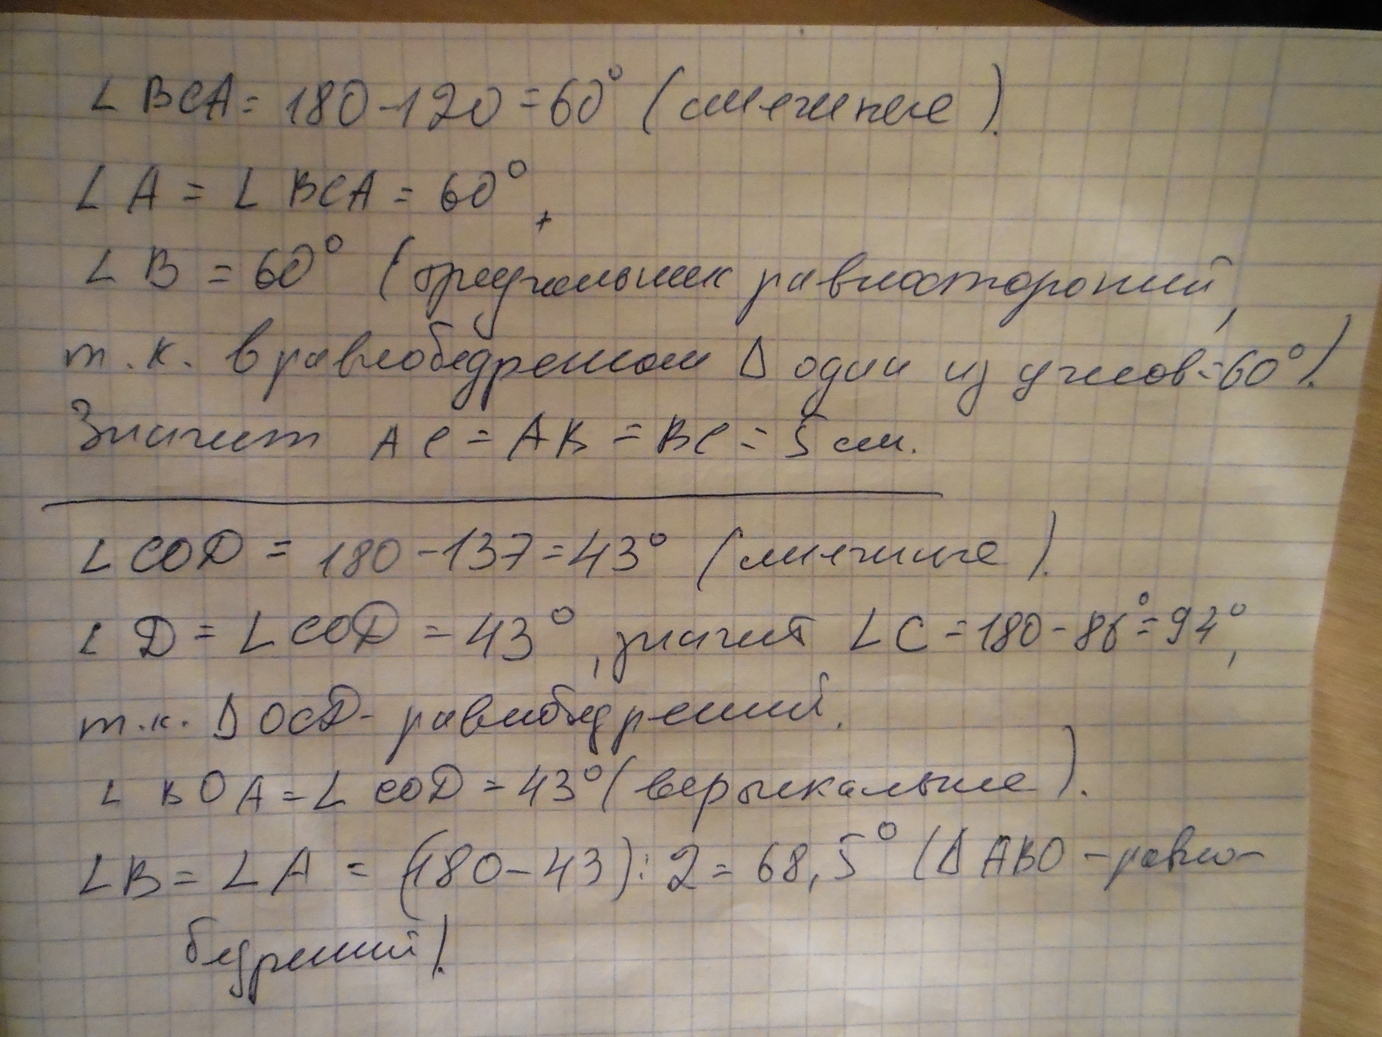 ∠ BCA = 180 - 120 = 60° (смежные).
∠ A = ∠ BCA = 60°,
∠ B = 60° (треугольник равносторонний,
т.к. в равнобедренном Δ один из углов = 60°).
Значит AC = AB = BC = 5 см.
∠ COD = 180 - 137 = 43° (смежные).
∠ D = ∠ COD = 43°, значит ∠ C = 180 - 86° = 94°,
т.к. Δ OCD - равнобедренный.
∠ BOA = ∠ COD = 43° (вертикальные).
∠ B = ∠ A = (180 - 43) : 2 = 68,5° (Δ ABO - равно-
бедренный).